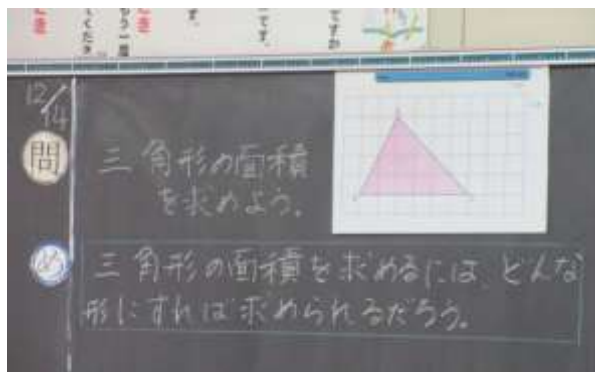 12/14
問
三角形の面積
を求めよう。
め
三角形の面積を求めるには、どんな
形にすれば求められるだろう。